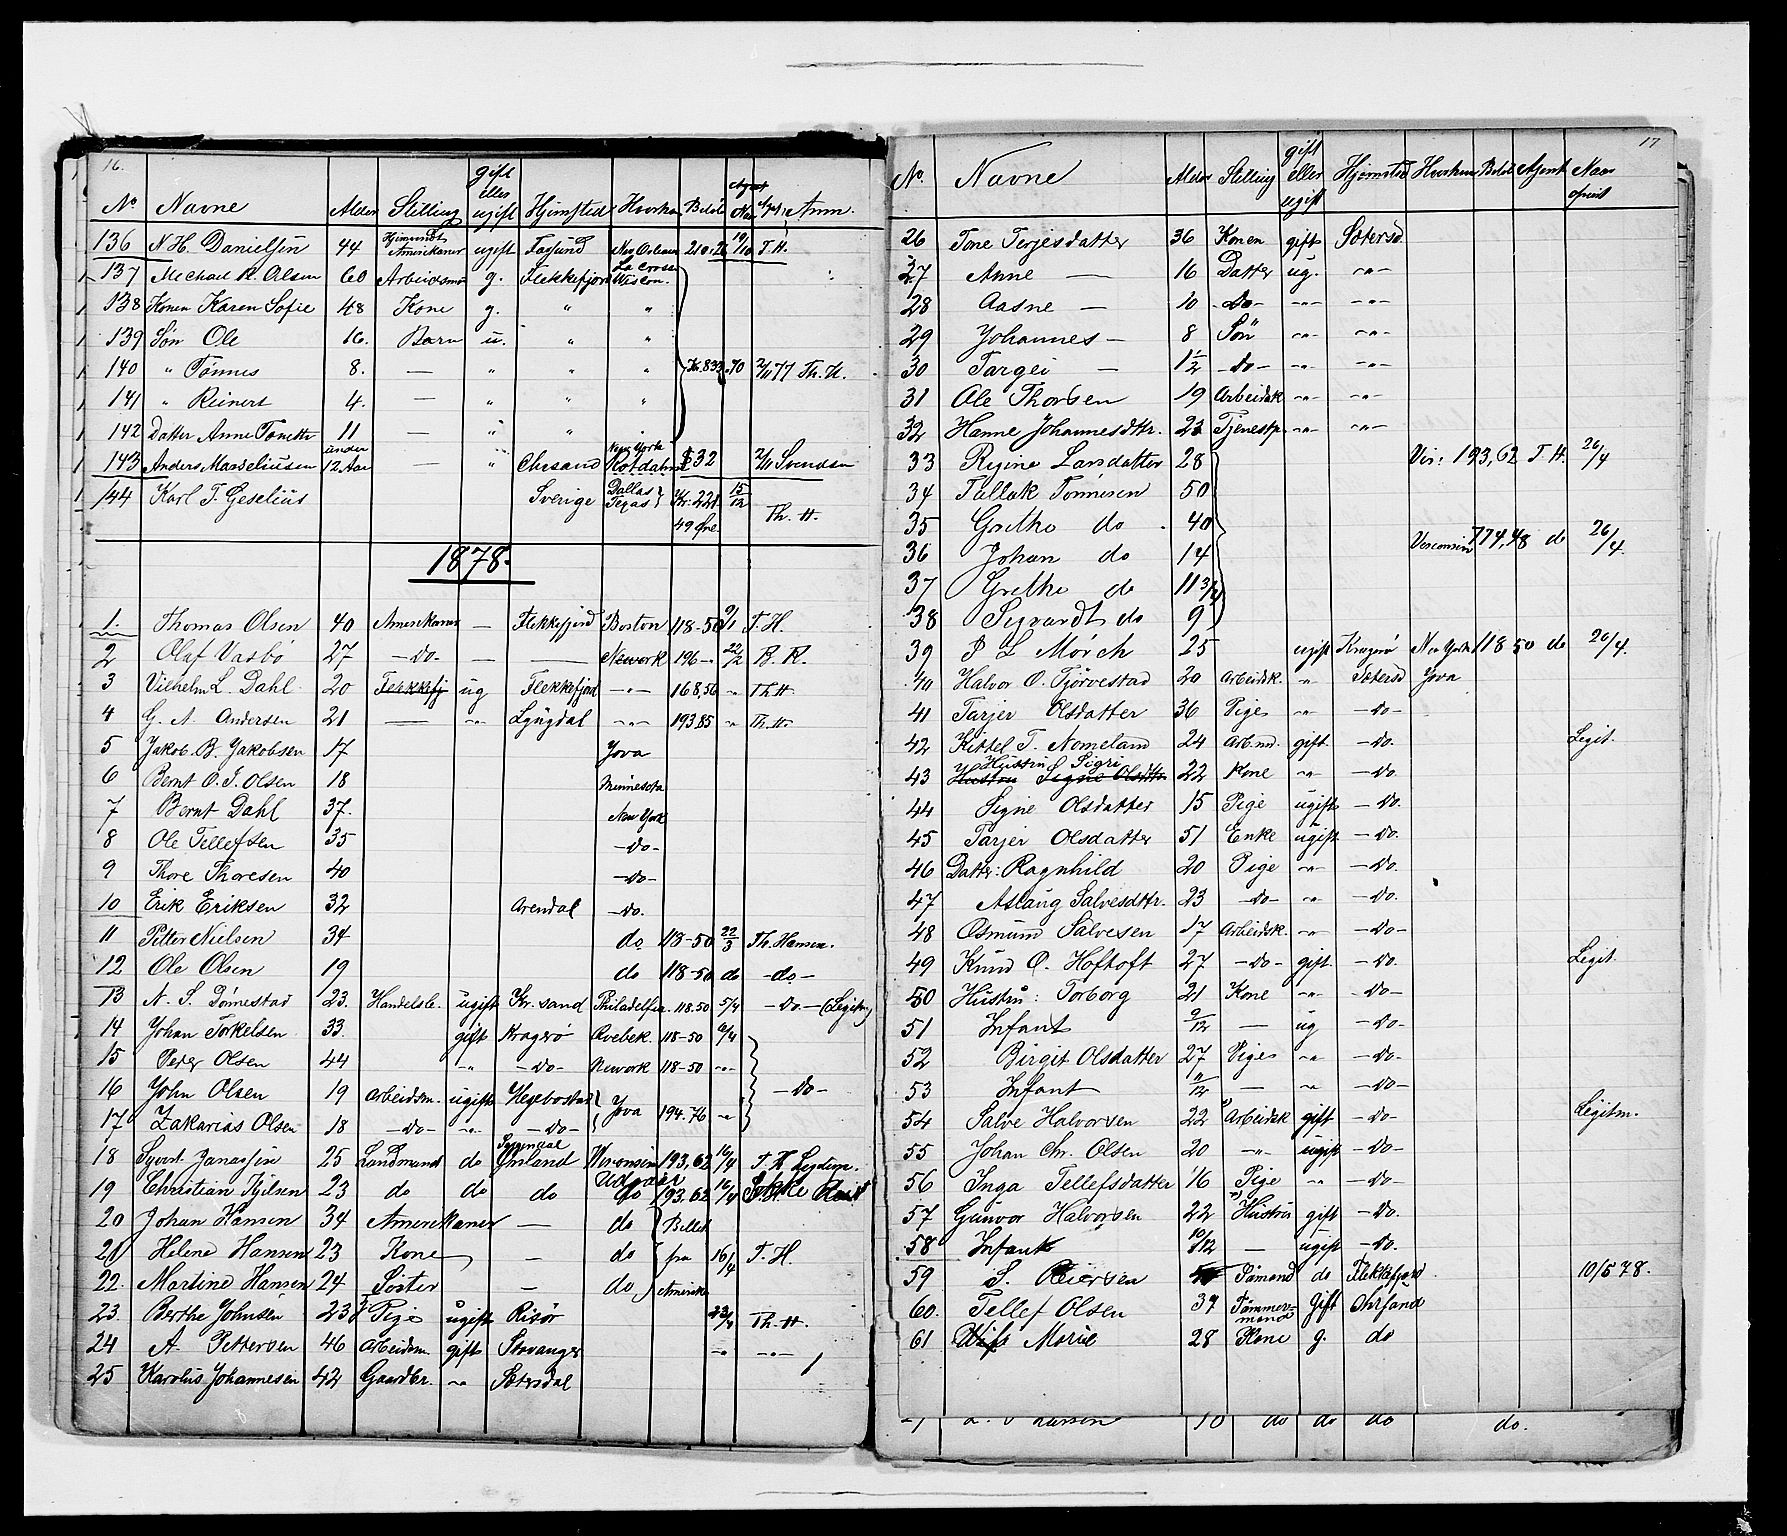 16.
No Navne Alder Stilling gift eller ugift Hjemsted Hvorhen Beløb Agent Naar Anm.
136 N. H. Danielsen 44 Hjemvendt Amerikaner ugift Farsund New Orleans 210.26 19/10 T. H.
137 Michael R. Olsen 60 Arbeidsm g. Flekkefjord La Cross Wiscon.
138 Konen Karen Sofie 48 Kone g. " "
139 Søn Ole 16. Barn u. " "
140 " Tønnes 8. — " " " Kr. 833.70 2/11 77 Th. H.
141 " Reinert 4. — " " "
142 Datter Anne Tonette 11 — " "
143 Anders Masseliusen under 12 Aar — " Chrsand New York Rotdahl $32 2/11 Svendsen
144 Karl T. Geselius Sverige Dallas Texas Kr. 221 49 Øre 15/12 Th. H.
1878.
1. Thomas Olsen 40 Amerikaner — Flekkefjord Boston 118-50 9/1 T. H.
2 Olaf Vasbø 27 -do- — — Nework 196- 22/2 B. R.
3 Vilhelm L. Dahl 20 Flekkefj ug Flekkefjord -"- 168,50 " Th H
4 G. A. Andersen 21 — -"- Lyngdal -"- 193.85 " Th. H.
5 Jakob B. Jakobsen 17 Iova
6 Bernt O. G. Olsen 18 Minnesota
7 Bernt Dahl 37. New York
8 Ole Tellefsen 35 -do-
9 Thore Thoresen 40 -do-
10 Erik Eriksen 32 Arendal -do.
11 Petter Nielsen 34 do 118-50 22/3 Th. Hansen.
12 Ole Olsen 19 do 118-50 do -do-
13 N. S. Dømestad 23. Handelsb. ugift Kr.sand Philadelfia 118.50 5/4 -do- (Legitm)
14 Johan Torkelsen 33. gift Kragerø Qvebek. 118-50 6/4
15 Peder Olsen 44 -"- -do- Nework 118-50 -"-
16 John Olsen 19 Arbeidsm. ugift Hegebostad Iova 194.76 -"- -do-
17 Zakarias Olsen 18 -do- -"- -do-
18 Syvert Janassen 25 Landmand do Ørsland Wisconsin 193,62 16/4 T. H Legtim.
19 Christian Kjelsen 23 do do do do 193.62 16/4 Ikke Reist
20 Johan Hansen 34 Amerikaner — do Billet
21 Helene Hansen 23 Kone — do fra 16/4 T. H.
22. Martine Hansen 24 Søster — do Amerika
23. Berthe Johnsen 23 Pige ugift Risør 23/4 Th. H.
24 A. Pettersen 46 Arbeidsm. gift Stavanger -"- -"-
25 Karolus Johannesen 42 Gaardbr. -"- Sætersdal
17
No. Navne Alder Stilling gift eller ugift Hjemsted Hvorhen Beløb Agent Naar
26 Tone Terjesdatter 36 Konen gift Sætersd
27 Anne — 16 Datter ug. -"-
28 Aasne — 10 -do- -"- -"-
29 Johannes — 8 Søn -"- -"-
30 Targei — 1 1/2 -do- -"- -"-
31 Ole Thorsen 19 Arbeidsk -"- -"-
32 Hanne Johannesdtr. 23 Tjenestp. -"- -"-
33 Regine Larsdatter 28 Vis: 193,62 T. H. 26/4
34 Tallak Tønnesen 50
35 Grethe do 40
36 Johan do 14 Visconsin 774,48 do 26/4
37 Grethe do 11 3/4
38 Sigvardt do 9
39 P L Mørch 25 ugift Kragerø New York 118 50 do 26/4.
40 Halvor O. Tjørvestad 20 Arbeidsk. " Sætersd Iova
41 Tarjer Olsdatter 36 Pige -"- -do-
42 Kittel T. Nomeland 24 Arb.md. gift. -do. Legit.
43 Hustru Sigri
Hustru Signe Olsdtr 22 Kone -"- -do
44 Signe Olsdatter 15 Pige ugift -do.
45 Tarjer Olsdatter 51 Enke ugift -do-
46 Datter: Ragnhild 20 Pige -"- -do.
47 Aslaug Salvesdtr. 23 -do- -"- -do-
48 Osmund Salvesen 17 Arbeidsk. -"- -do-
49 Knud O. Hoftoft 27 -do- gift -do- Legit.
50 Hustru: Torborg 21 Kone -"- -do-
51 Infant 9/12 — ug -do-
52 Birgit Olsdatter 27 Pige -"- -do-
53 Infant 11/12 — -"- -do-
54 Salve Halvorsen 22 Arbeidsk gift -do- Legitm.
55 Johan Chr. Olsen 20 -"- ugift -do-
56 Inga Tellefsdatter 16 Pige -"- -do-
57 Gunvor Halvorsen 22 Hustru gift -do.
58 Infant 10/12 — ugift -do-
59 S. Reiersen Sømand do Flekkefjord 10/5 78.
60. Tellef Olsen 37 Tømmermand Gift Chrsand
61 Wife Marie 28 Kone g. do
Larsen 10 do do do do.